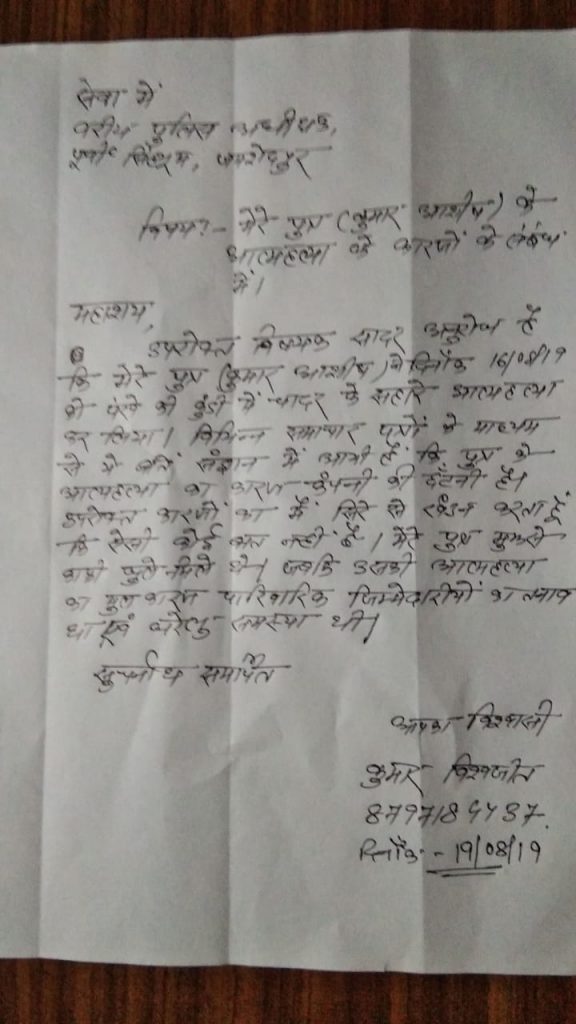 सेवा में
वरीय पुलिस अधीक्षक,
पूर्वी सिंहभूम, जमशेदपुर
विषय:- मेरे पुत्र (कुमार आशीष) के
आत्महत्या के कारणों के संबंध
में।
महाशय,
उपरोक्त विषयक सादर अनुरोध है
कि मेरे पुत्र (कुमार आशीष) ने दिनाँक 16/08/19
को पंखे की कुंडी में चादर के सहारे आत्महत्या
कर लिया। विभिन्न समाचार पत्रों के माध्यम
से ये बातें संज्ञान में आयी हैं कि पुत्र के
आत्महत्या का कारण कंपनी की छँटनी है।
उपरोक्त कारणों का मैं सिरे से खंडन करता हूँ
कि ऐसी कोई बात नहीं है। मेरे पुत्र मुझसे
काफी घुले मिले थे। जबकि उसकी आत्महत्या
का मुल कारण पारिवारिक जिम्मेदारीयों का तनाव
था एवं घरेलु समस्या थी।
सुचनार्थ समर्पित
आपका विश्वासी
कुमार विश्वजीत
दिनाँक:- 19/08/19